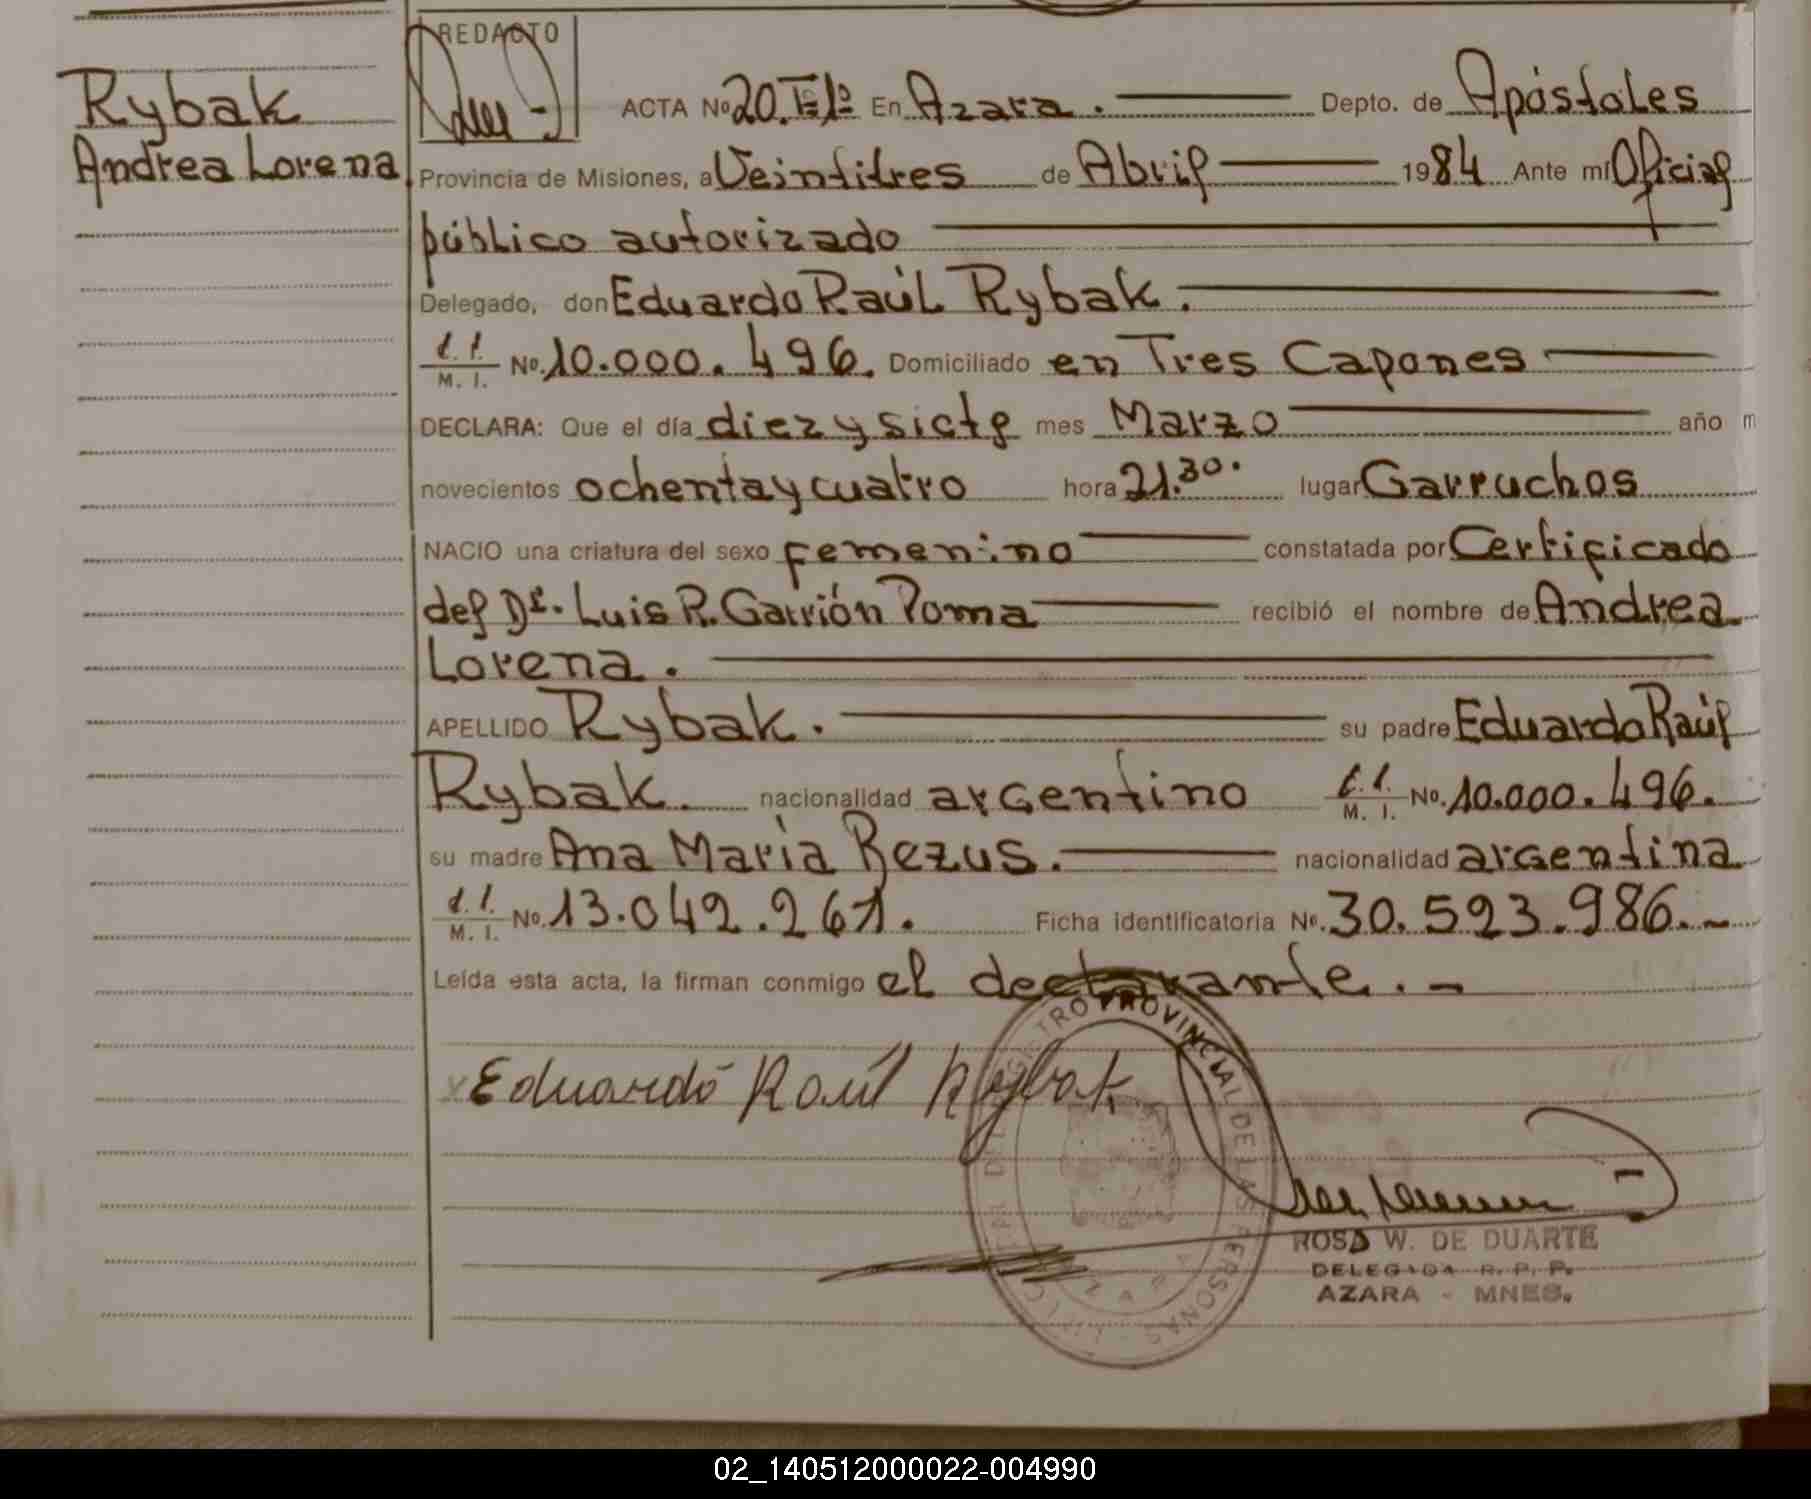 REDACTO
Rybak
Andrea Lorena
ACTA No 20. Tº 1º En Azara. Depto. de Apóstoles
Provincia de Misiones, a Veintitres de Abril 1984 Ante mí Oficial
público autorizado
Delegado, don Eduardo Raúl Rybak.
M. I. No. 10.000.496. Domiciliado en Tres Capones
DECLARA: Que el día diez y siete mes Marzo año m
novecientos ochenta y cuatro hora 21.30. lugar Garruchos
NACIO una criatura del sexo femenino constatada por Certificado
del Dr. Luis R. Garrión Poma recibió el nombre de Andrea
Lorena.
APELLIDO Rybak. su padre Eduardo Raúl
Rybak. nacionalidad argentino M. I. No. 10.000.496.
su madre Ana María Rezus. nacionalidad argentina
M. I. No. 13.042.261. Ficha identificatoria No. 30.523.986.-
Leída esta acta, la firman conmigo el declarante.-
Eduardo Raúl Rybak
REGISTRO PROVINCIAL DE LAS PERSONAS
AZARA
ROSA W. DE DUARTE
DELEGADA R. P. P.
AZARA - MNES.
02_140512000022-004990